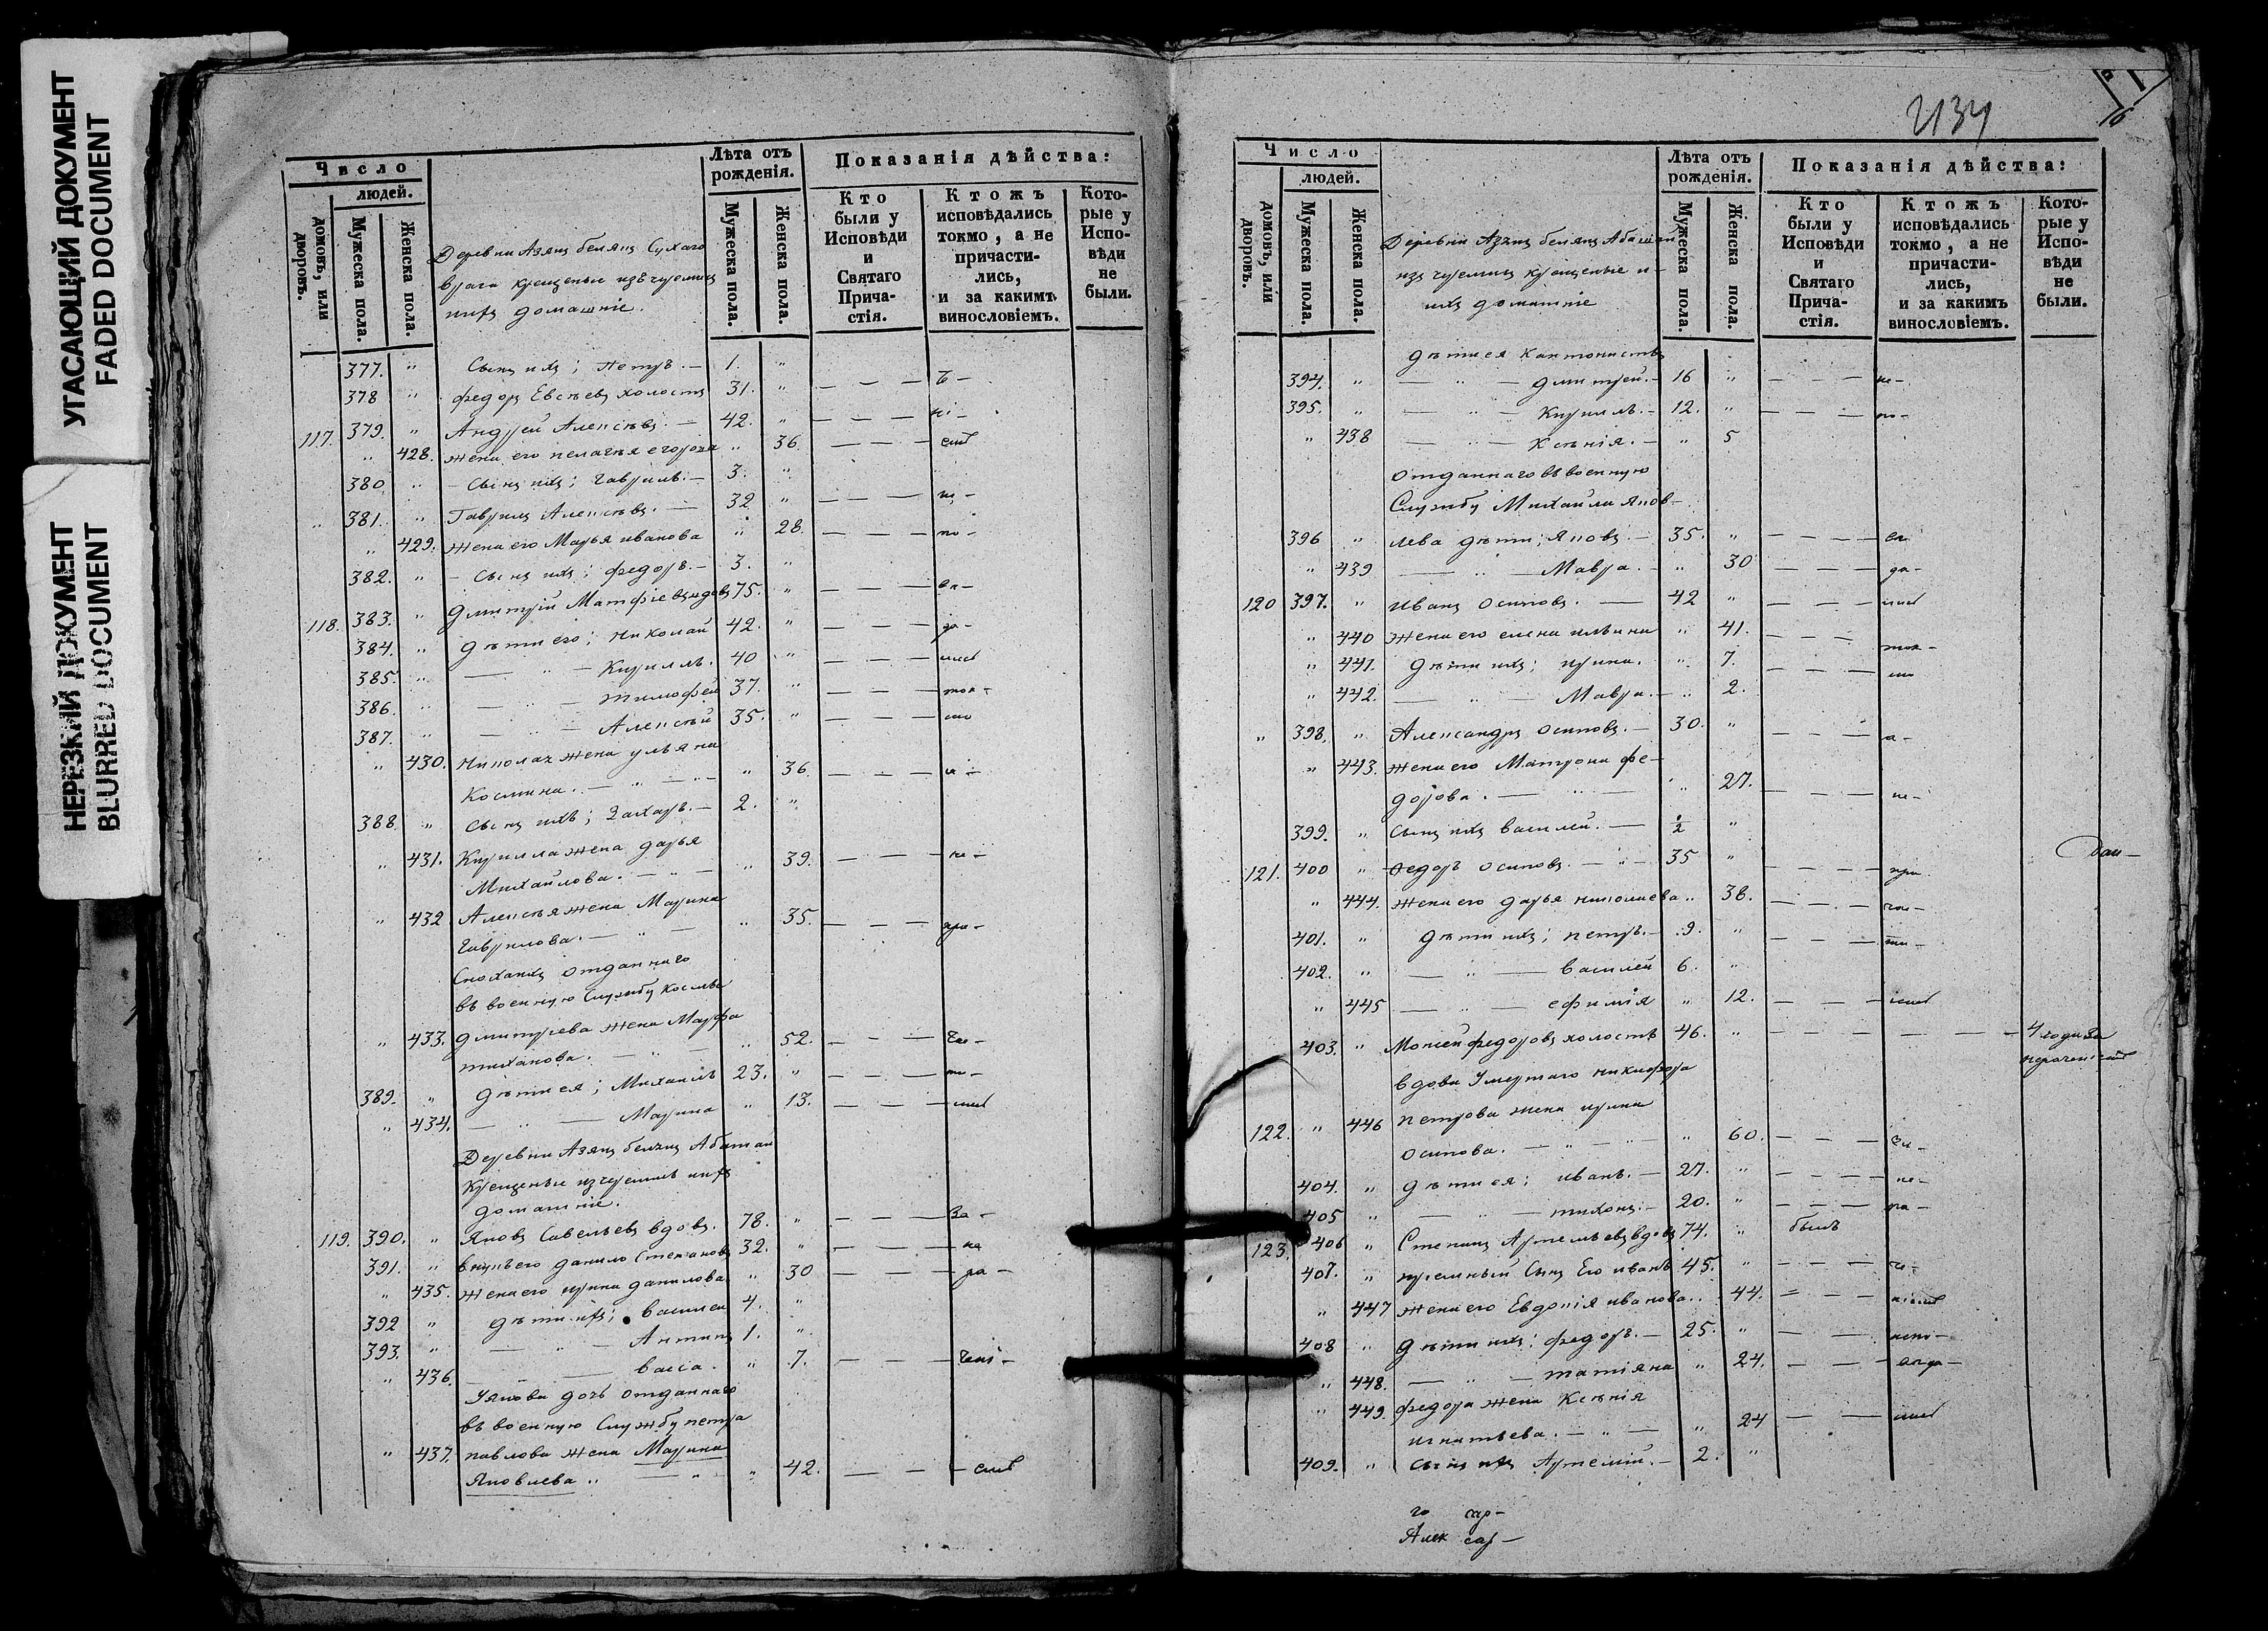 УГАСАЮЩИЙ ДОКУМЕНТ
FADED DOCUMENT
НЕРЕЗКИЙ ДОКУМЕНТ
BLURRED DOCUMENT
Число
людей.
домовъ, или дворовъ.
Мужеска пола.
Женска пола.
Деревни Азянъ белянъ Сухаго
врага крещеные изъ черемисъ
ихъ домашніе.
Лѣта отъ рожденія.
Мужеска пола.
Женска пола.
Показанія дѣйства:
Кто были у Исповѣди и Святаго Прича-стія.
Ктожъ исповѣдались токмо, а не причасти-лись, и за какимъ винословіемъ.
Кото-рые у Испо-вѣди не были.
377. " Сынъ ихъ; Петръ. — 1. "
378 " Федоръ Евсѣевъ холостъ 31. " — — —
117. 379. " Андрей Алексѣевъ. — 42. " — — —
" 428. жена его пелагѣя егорова " 36. — — —
380. " — Сынъ ихъ; Гаврилъ. — 3. "
" 381. " Гаврилъ Алексѣевъ. — 32 " — — — по —
" 429. Жена его Марья иванова " 28. — — — по —
382. " — Сынъ ихъ; Федоръ. — 3. "
118. 383. " Дмитрій Матфіевъ вдовъ 75. " — — —
384. " дѣти его; николай 42. " — — —
385. " — " — Кириллъ. 40 " — — —
386. " — " — тимофей 37. " — — —
387. " — " — Алексѣй 35. " — — —
" 430. николая жена ульяна
Космина. — " — " 36 — — —
388. " сынъ ихъ; Захаръ. — 2. "
" 431. Кирилла жена дарья
Михайлова. — " — " 39. — — — не —
" 432 Алексѣя жена Марина
Гаврилова. — " — " 35. — — — при —
Сноха ихъ отданнаго
въ военную Службу Космы
" 433. дмитріева жена Марфа
тиханова. — " — " 52. — — —
389. " дѣти ея; Михаилъ 23. " — — —
" 434. — " — Марина " 13. — — —
Деревни Азянъ белянъ Абашай
Крещеные изъ черемисъ ихъ
домашніе.
119. 390. " Яковъ Савельевъ вдовъ. 78. " — — — За —
391. " внукъ его данило Степановъ 32. " — — — не
" 435. жена его ирина данилова " 30 — — — ра —
392 " дѣти ихъ; Василей 4. "
393. " — " — Антипъ 1. "
" 436. — " — васса. " 7. — — —
Уякова дочь отданнаго
въ военную Службу петра
" 437. павлова жена Марина
Яковлева. " — " " 42. — — —
2134
16
Число
людей.
домовъ, или дворовъ.
Мужеска пола.
Женска пола.
Деревни Азянъ белянъ Абашай
изъ черемисъ крещеные и
ихъ домашніе
Лѣта отъ рожденія.
Мужеска пола.
Женска пола.
Показанія дѣйства:
Кто были у Исповѣди и Святаго Прича-стія.
Ктожъ исповѣдались токмо, а не причасти-лись, и за какимъ винословіемъ.
Кото-рые у Испо-вѣди не были.
дѣти ея Кантонисты
394. " — " — дмитрей. — 16 " — — — не —
395. " — " — Кириллъ. — 12. " — — — ро —
" 438 — " — Ксѣнія. — " 5
отданнаго въ военную
Службу Михайла Яков —
396 " лева дѣти; Яковъ. — 35. " — — —
" 439 — " — Мавра. — " 30 — — —
120 397. " иванъ осиповъ. — 42 " — — —
" 440 жена его елена ильина " 41. — — —
" 441. дѣти ихъ; ирина. " 7. — — —
" 442. — " — Мавра. — " 2.
" 398. " Александръ осиповъ. — 30. " — — — а —
" 443. жена его Матрона фе —
дорова. — " — " 27. — — — не —
399. " сынъ ихъ василей. — ½ "
121. 400 " Федоръ осиповъ. — " — 35 " — — — при
" 444. жена его дарья николаева " 38. — — —
401. " дѣти ихъ; петръ. — 9. " — — —
402. " — " — василей 6. "
" 445 — " — ефимія " 12. — — —
403. " Мокей федоровъ холостъ 46. " — — — — — — 4 года за
нераченіемъ
вдова Умершаго никифора
122. " 446 петрова жена ирина
осипова. — " — " " 60. — — —
404. " дѣти ея; иванъ. — 27. " — — — не —
405 " — " — тихонъ. — 20. " — — — ра —
123. 406 " Степанъ Артемьевъ вдовъ 74. " былъ
407. " приемный Сынъ Его иванъ 45. " — — — че —
" 447 жена его Евдокія иванова. " 44. — — —
408 " дѣти ихъ: федоръ. — 25. " — — —
" 448. — " — татіяна " 24. — — —
" 449. федора жена Ксѣнія
игнатьева. — " — " 24 — —
409. " сынъ ихъ Артемій. — 2. "
го сар —
Алек сар —